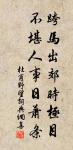 跨馬出郊時極目
不堪人事日蕭條
杜甫野望詩典檷𦕈